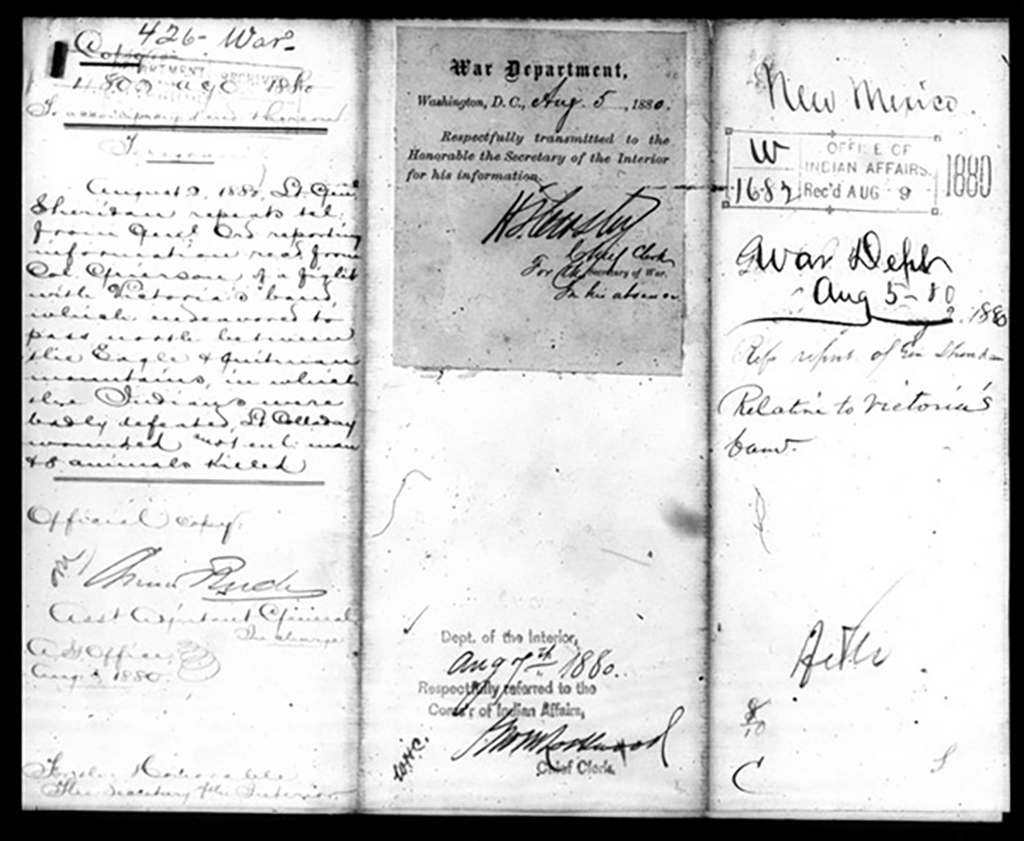 426 - War
Copy
4802 1880
To accompany
Texas
August 2, 1880, Lt. Gen.
Sheridan repeats tel.
from Genl Ord reporting
information recd from
Col Grierson of a fight
with Victoria's band,
which endeavored to
pass north between
the Eagle & Quitman
mountains, in which
the Indians were
badly defeated, Lt Colladay
wounded & one enl. man
& 8 animals killed
Official copy.
Asst Adjutant General
In charge
A.G. Office,
Aug. 1880.
The Honorable
The Secretary of the Interior
War Department,
Washington, D. C., Aug. 5, 1880.
Respectfully transmitted to the
Honorable the Secretary of the Interior
for his information.
Chief Clerk
For the Secretary of War.
In his absence
Dept. of the Interior,
Aug 7th 1880.
Respectfully referred to the
Com'r of Indian Affairs,
Chief Clerk.
New Mexico.
W
1682
OFFICE OF
INDIAN AFFAIRS.
Rec'd AUG 9
1880
War Dept
Aug 5-80
1880
Refs report of Gen Sheridan
Relative to Victoria's
band.
File
8/10
C